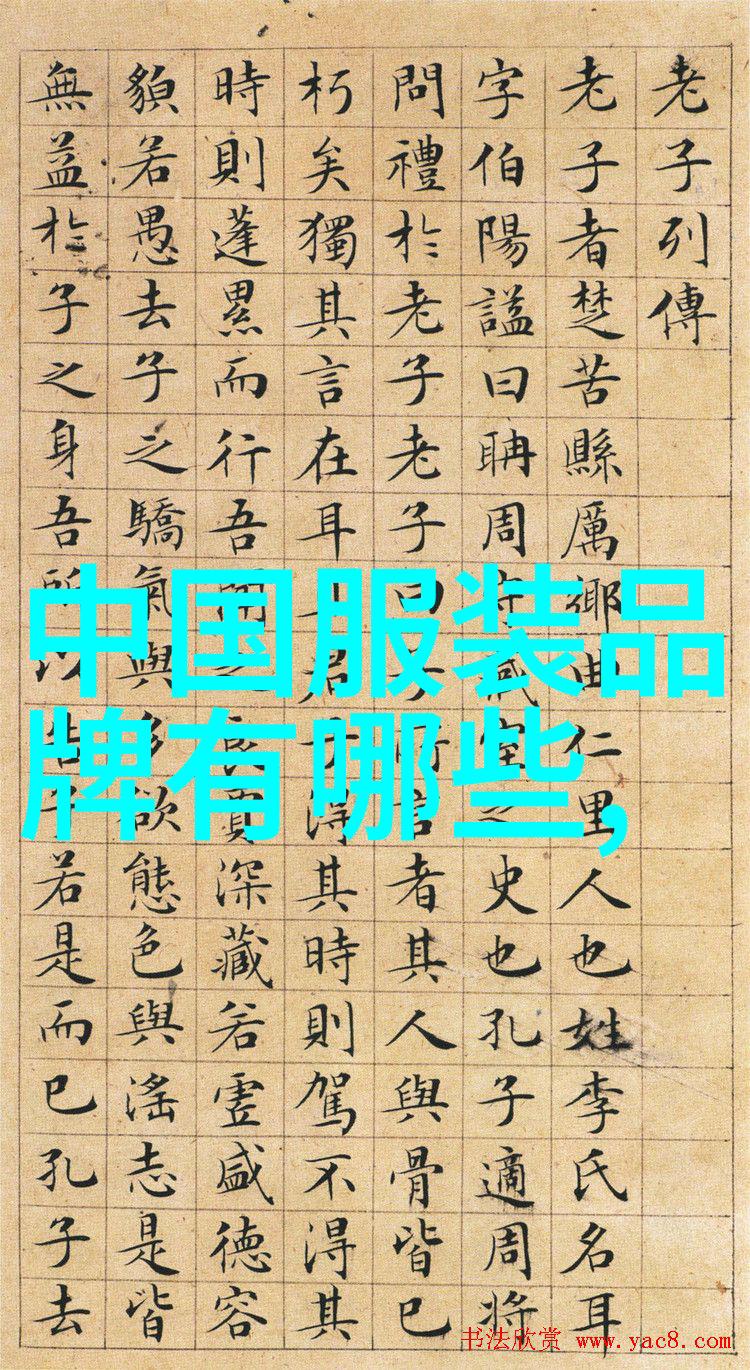 老子列傳
老子者楚苦縣厲鄉曲仁里人也姓李氏名耳
字伯陽謚曰聃周守藏室之史也孔子適周將
問禮於老子老子曰子所言者其人與骨皆已
朽矣獨其言在耳且君子得其時則駕不得其
時則蓬累而行吾聞之良賈深藏若虛盛德容
貌若愚去子之驕氣與多欲態色與淫志是皆
無益於子之身吾所以告子若是而已孔子去
中国服装品
牌有哪些,
书法欣赏 www.yac8.com